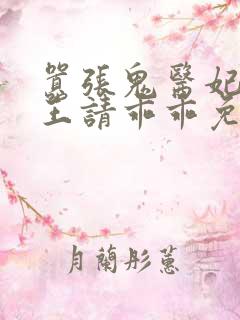 囂張鬼醫妃
王請乖乖
月蘭彤蕙